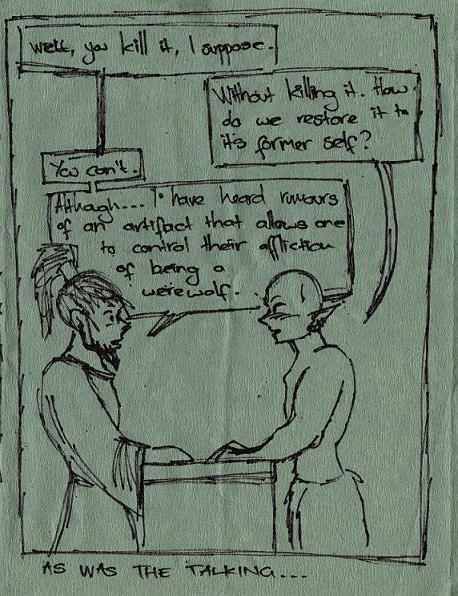 Well, you kill it, I suppose.
Without killing it. How
do we restore it to
it's former self?
You can't.
Although.... I have heard rumours
of an artifact that allows one
to control their affliction
of being a
werewolf.
AS WAS THE TALKING...